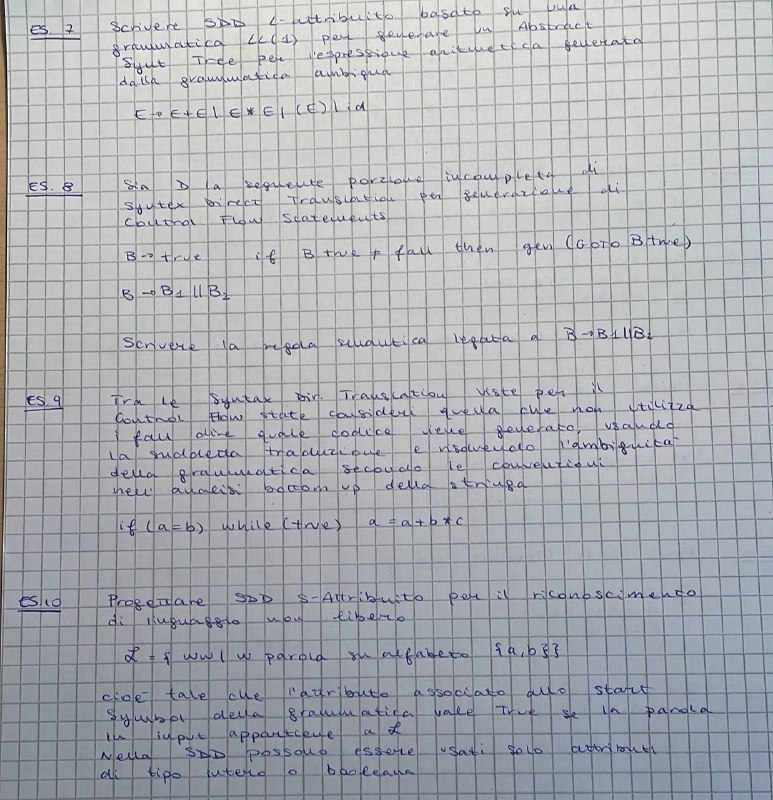 ES. 7 Scrivere SDD L-attribuito basato su una
grammatica LL(1) per generare un Abstract
Synt Tree per l'espressione aritmetica generata
dalla grammatica ambigua
E → E+E | E * E | (E) | id
ES. 8 Sia D la seguente porzione incompleta di
Syntex Direct Translation per generazione di
Control Flow Statements
B → true if B true ≠ fall then gen (GOTO B true)
B → B1 || B2
Scrivere la regola semantica legata a B→B1||B2
ES. 9 Tra le Syntax Dir. Translation viste per il
Control Flow state consideri quella che non utilizza
i fall dire quale codice viene generato, usando
la suddetta traduzione e risolvendo l'ambiguità
della grammatica secondo le convenzioni
nell' analisi bottom up della stringa
if (a=b) while (true) a = a+b*c
ES.10 Progettare SDD S-Attribuito per il riconoscimento
di linguaggio non libero
L = { ww | w parola su alfabeto {a,b}}
cioè tale che l'attributo associato allo start
symbol della grammatica vale True se la parola
in input appartiene a L
Nella SDD possono essere usati solo attributi
di tipo intero o booleana